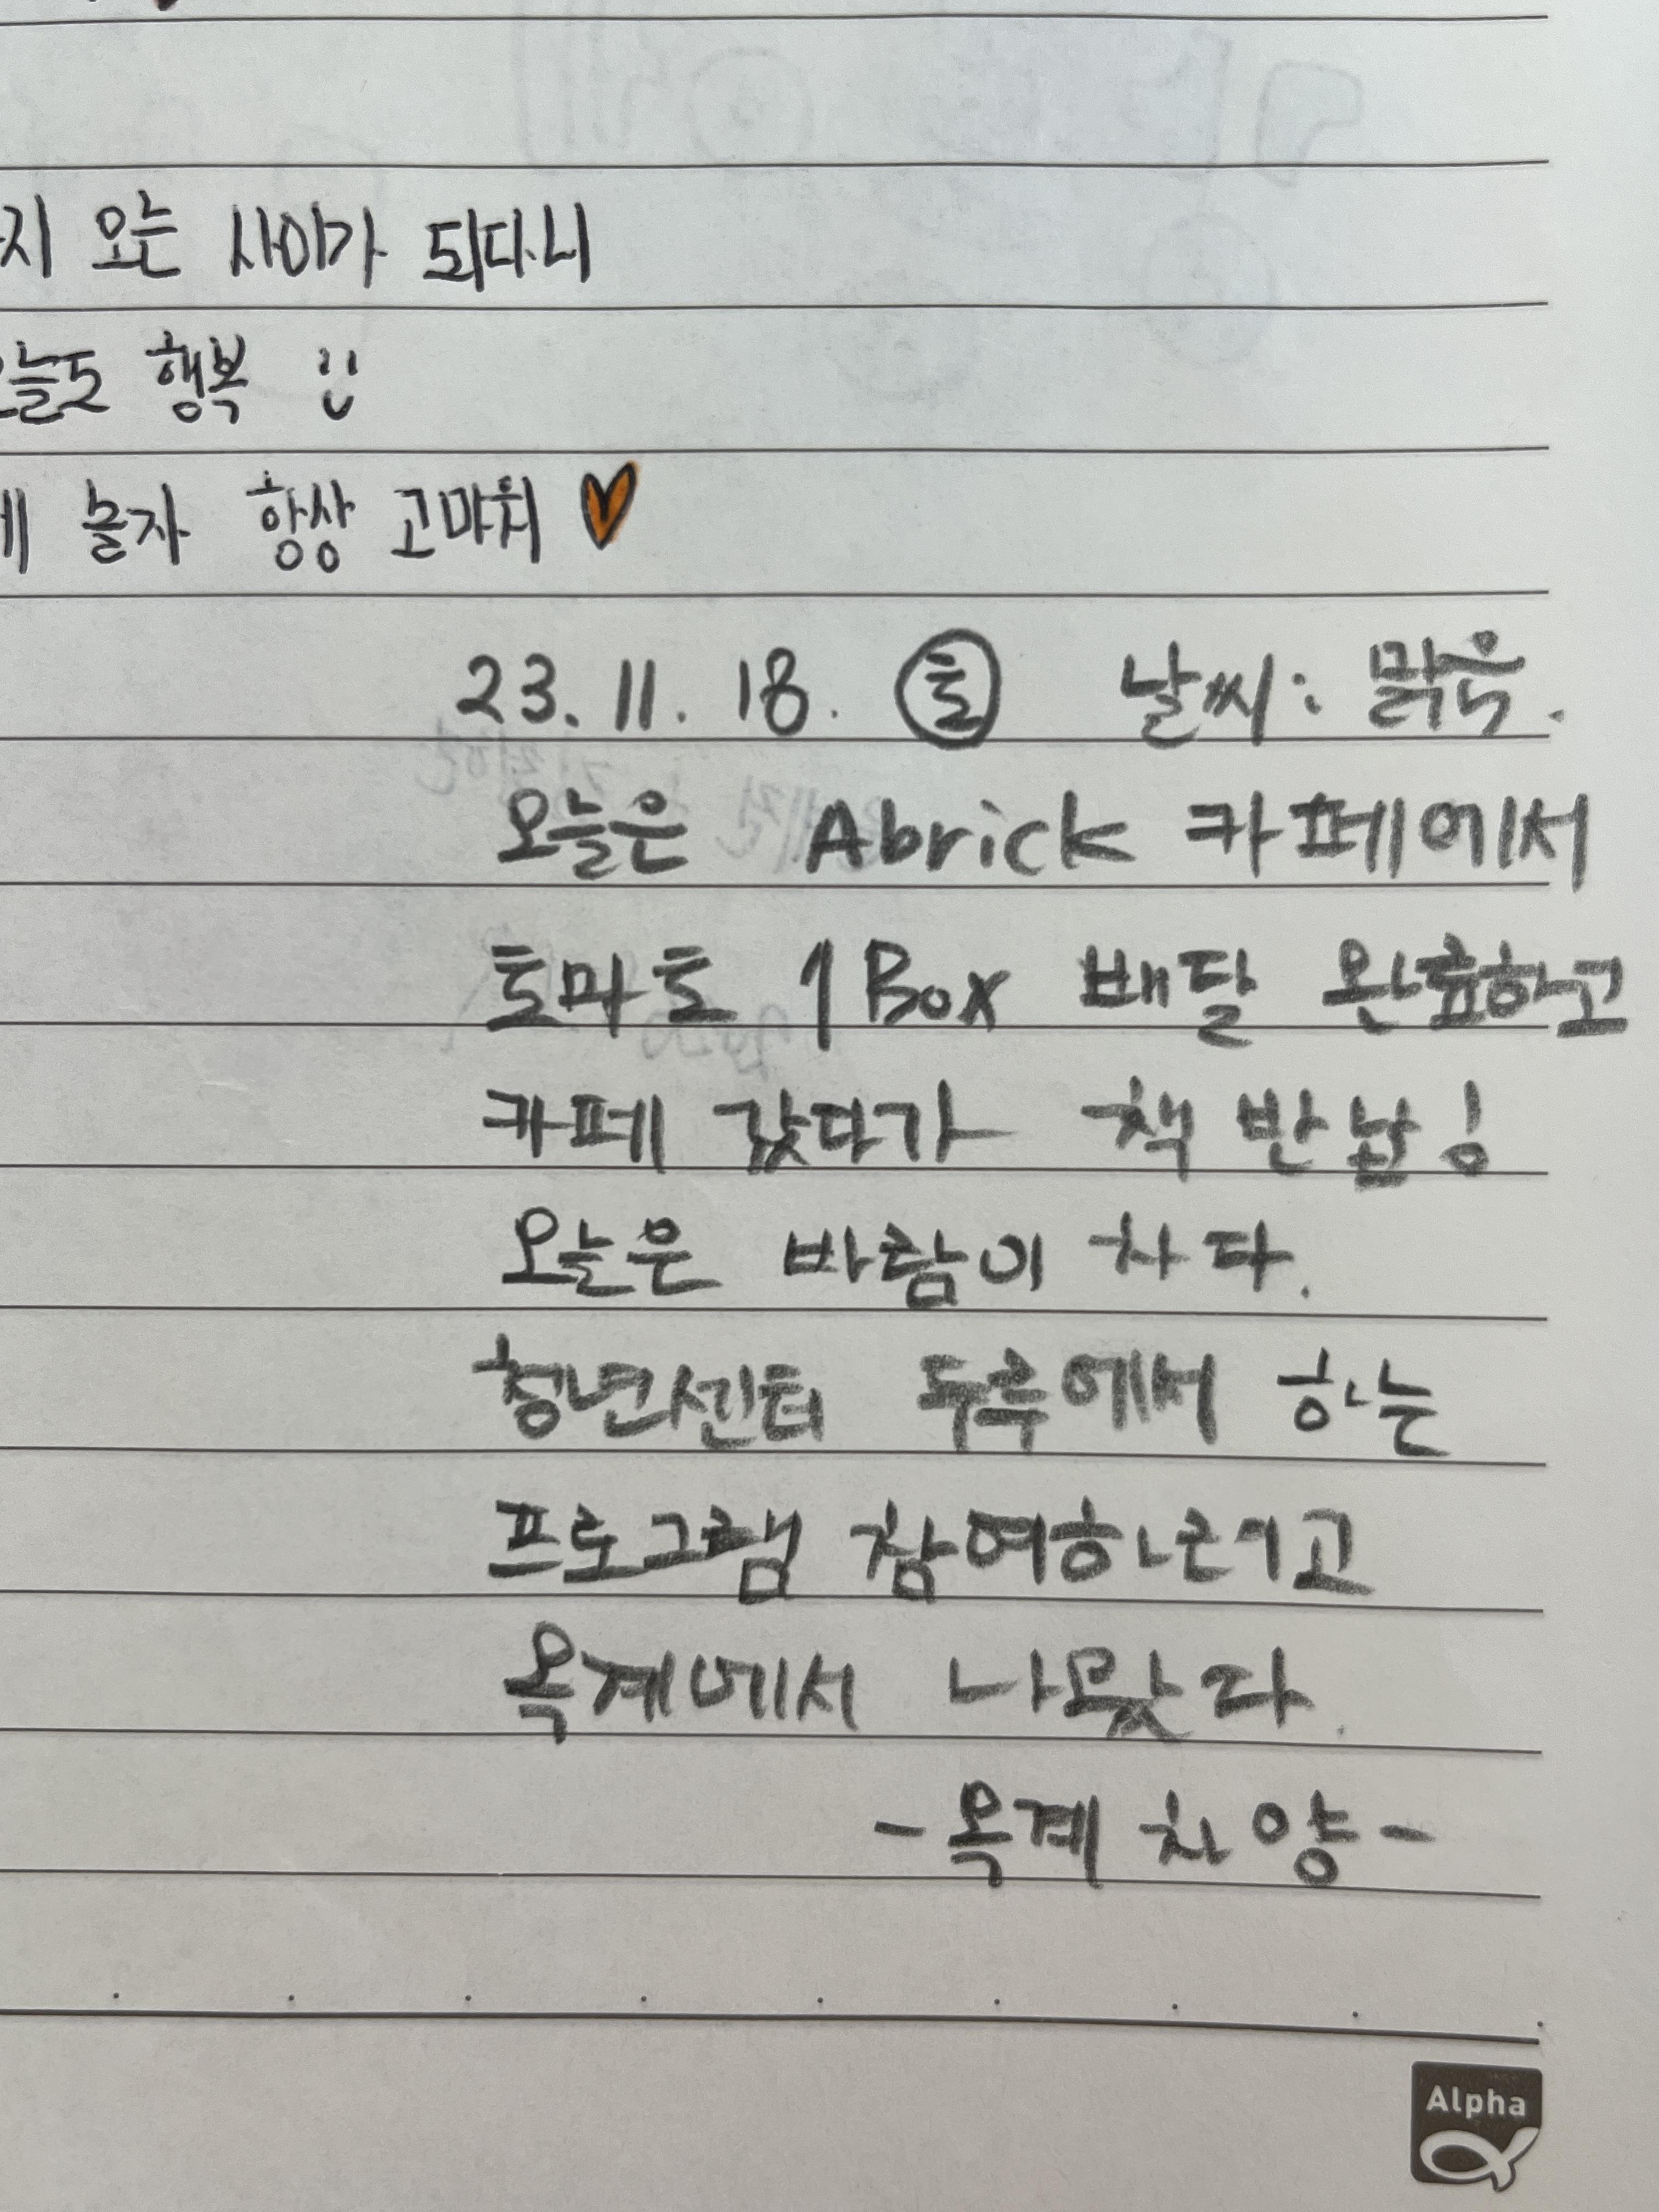 지 오는 사이가 되다니
오늘도 행복
놀자 항상 고마워
23.11.18. 토 날씨: 맑음.
오늘은 Abrick 카페에서
토마토 1 Box 배달 완료하고
카페 갔다가 책 반납!
오늘은 바람이 차다.
청년센터 두루에서 하는
프로그램 참여하려고
옥계에서 나왔다.
- 옥계 차양 -
Alpha